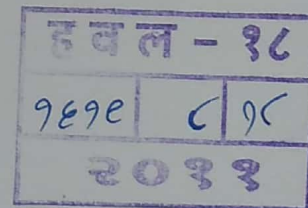 हवल - १८
१६१९ ८ १८
२०११